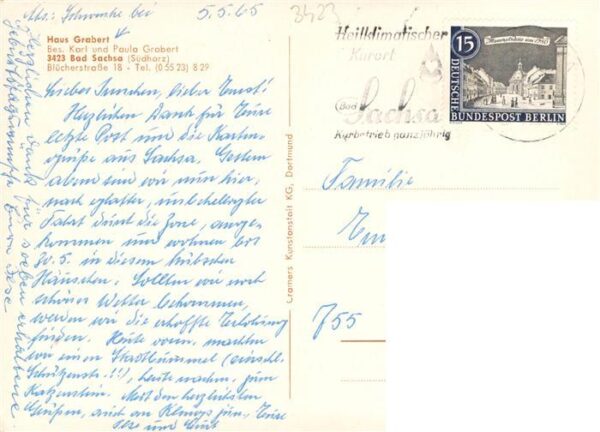 Abs.: Schwenke bei
5.5.65
3423
Haus Grabert
Bes. Karl und Paula Grabert
3423 Bad Sachsa (Südharz)
Blücherstraße 18 - Tel. (0 55 23) 8 29
Liebes Suschen, lieber Ernst!
Herzlichen Dank für Eure
letzte Post und die Karten-
grüße aus Sachsa. Gestern
abend sind wir nun hier,
nach glatter, unbehelligter
Fahrt durch die Zone, ange-
kommen und wohnen bis
30.5. in diesem hübschen
Häuschen. Sollten wir noch
schönes Wetter bekommen,
werden wir die erhoffte Erholung
finden. Heute vorm. machten
wir einen Stadtbummel (einschl.
Schützenstr.!!), heute nachm. zum
Katzenstein. Mit den herzlichsten
Grüßen, auch an jun., Eure
Ilse und
Herzlichen Dank für soeben erhaltene
Geburtstagswünsche Eure Ilse
Cramers Kunstanstalt KG, Dortmund
Heilklimatischer
Kurort
Bad
Sachsa
Kurbetrieb ganzjährig
15
DEUTSCHE
BUNDESPOST BERLIN
Familie
755